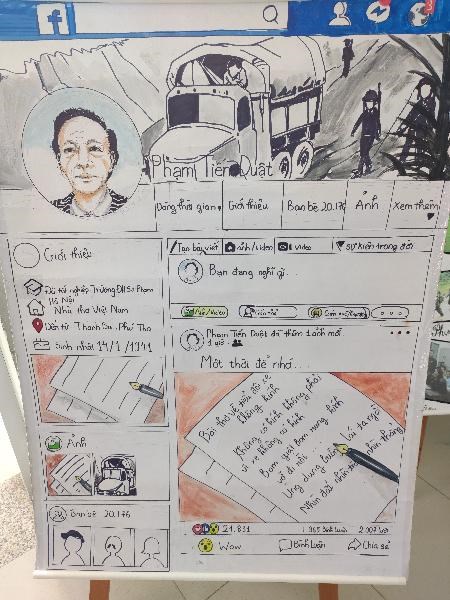 f
Phạm Tiến Duật
Dòng thời gian
Giới thiệu
Bạn bè 20.176
Ảnh
Xem thêm
Giới thiệu
Đã tốt nghiệp Trường ĐH Sư Phạm
Hà Nội
Nhà thơ Việt Nam
Đến từ Thanh Ba, Phú Thọ
Sinh nhật 14/1/1941
Ảnh
Bạn bè 20.176
Tạo bài viết
Ảnh/video
Video
Sự kiện trong đời
Bạn đang nghĩ gì...
Ảnh/video
Phạm Tiến Duật đã thêm 1 ảnh mới.
1 giờ
Một thời để nhớ...
Bài thơ về tiểu đội xe
không kính
Không có kính không phải
vì xe không có kính
Bom giật bom rung kính
vỡ đi rồi
Ung dung buồng lái ta ngồi
Nhìn đất nhìn trời nhìn thẳng
21.831
bình luận
Wow
Bình luận
Chia sẻ